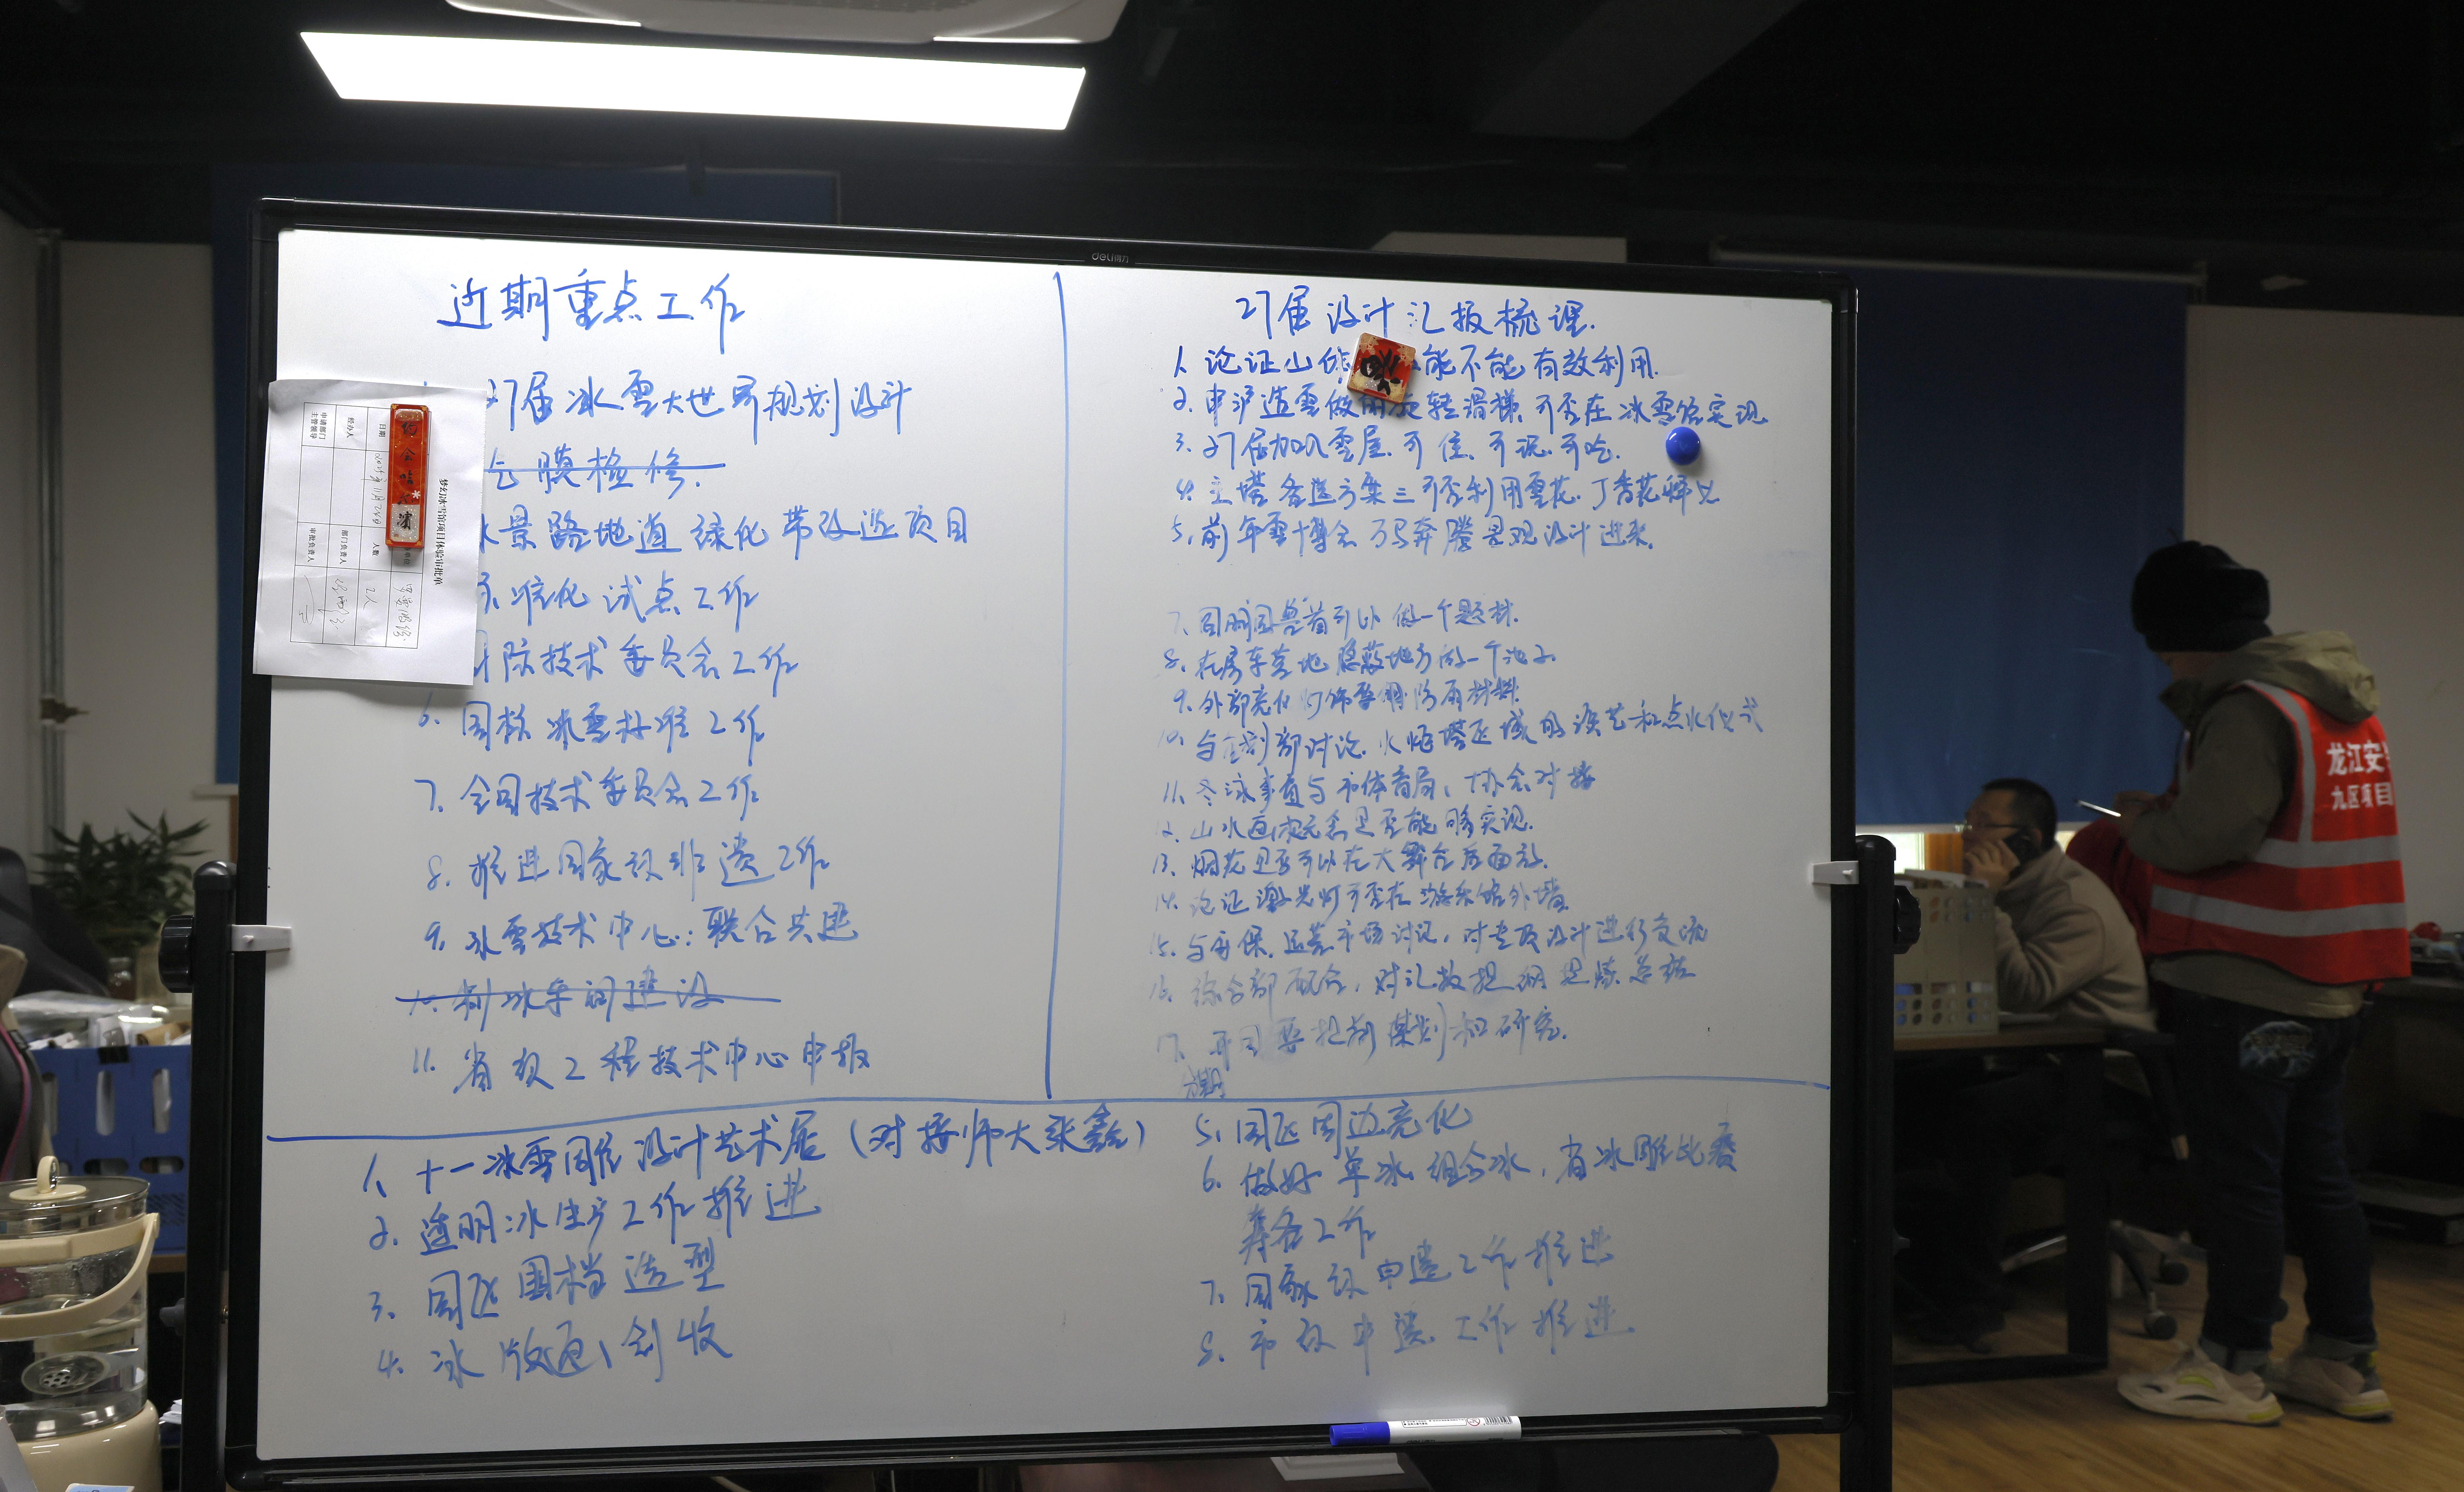 deli得力
近期重点工作
27届冰雪大世界规划设计
气膜检修.
冰景路地道绿化带改造项目
标准化试点工作
国际技术委员会工作
6. 国标冰雪标准工作
7. 全国技术委员会工作
8. 推进国家级非遗工作
9. 冰雪技术中心:联合共建
10. 制冰车间建设
11. 省级工程技术中心申报
27届设计汇报梳理.
1. 论证山体 能不能有效利用.
2. 申沪造雪做的旋转滑梯,可否在冰雪馆实现
3. 27届加入雪屋.可住.可玩.可吃.
4. 主塔备选方案三可否利用雪花.丁香花释义
5. 前年雪博会万马奔腾景观设计进来.
7. 圆明园兽首可以做一个题材.
8. 在房车营地隐蔽地方做一个池子
9. 外部亮化灯饰要用防雨材料.
10. 与企划部讨论.火炬塔区域的演艺和点火仪式
11. 冬泳事宜与市体育局、协会对接
12. 山水画概念是否能够实现.
13. 烟花是否可以在大舞台后面放.
14. 论证激光灯可否在游乐馆外墙
15. 与安保.运营市场讨论,对走及设计进行交流
16. 综合部配合,对汇报提纲提炼总结
17. 开园要提前谋划和研究.
1、十一冰雪雕设计艺术展(对接师大张鑫)
2. 透明冰生产工作推进
3. 园区围档造型
4. 冰版画、创收
5. 园区周边亮化
6. 做好单冰组合冰,省冰雕比赛
筹备工作
7. 国家级申遗工作推进
8. 市级申遗.工作推进
梦幻冰雪馆项目体验审批单
日期
2025年11月24日
人数
2人
经办人
部门负责人
申请部门
主管领导
审批负责人
龙江安
九区项目